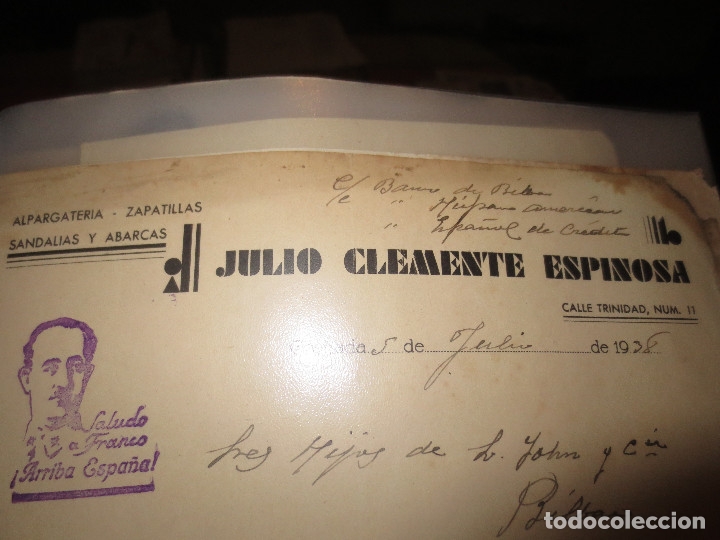 ALPARGATERIA - ZAPATILLAS
SANDALIAS Y ABARCAS
c/c Banco de Bilbao
" Hispano Americano
" Español de Crédito
JULIO CLEMENTE ESPINOSA
CALLE TRINIDAD, NUM. 11
5 de Julio de 1938
Saludo
a Franco
¡Arriba España!
Sres Hijos de L. John y Cia
Bilbao
todocoleccion